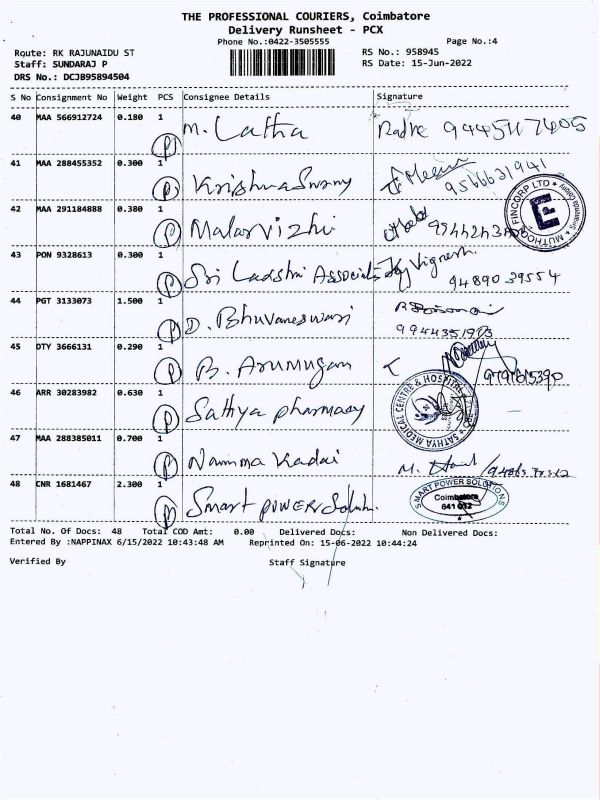 THE PROFESSIONAL COURIERS, Coimbatore
Delivery Runsheet - PCX
Phone No.:0422-3505555 Page No.:4
Route: RK RAJUNAIDU ST RS No.: 958945
Staff: SUNDARAJ P RS Date: 15-Jun-2022
DRS No.: DCJB95894504
S No Consignment No Weight PCS Consignee Details Signature
40 MAA 566912724 0.180 1
P M. Latha
41 MAA 288455352 0.300 1
P Krishnaswamy
42 MAA 291184888 0.380 1
P Malarvizhi
MUTHOOT FINCORP LTD
43 PON 9328613 0.300 1
P Sri Lakshmi Associates Vignesh
94890 39554
44 PGT 3133073 1.500 1
P D. Bhuvaneswari
45 DTY 3666131 0.290 1
P B. Arumugam
46 ARR 30283982 0.630 1
P Sathya pharmacy
SATHYA MEDICAL CENTRE & HOSPITAL
47 MAA 288385011 0.700 1
P Namma Kadai
48 CNR 1681467 2.300 1
P Smart power Solutn.
SMART POWER SOLUTIONS
Coimbatore
641 012
Total No. Of Docs: 48 Total COD Amt: 0.00 Delivered Docs: Non Delivered Docs:
Entered By :NAPPINAX 6/15/2022 10:43:48 AM Reprinted On: 15-06-2022 10:44:24
Verified By Staff Signature